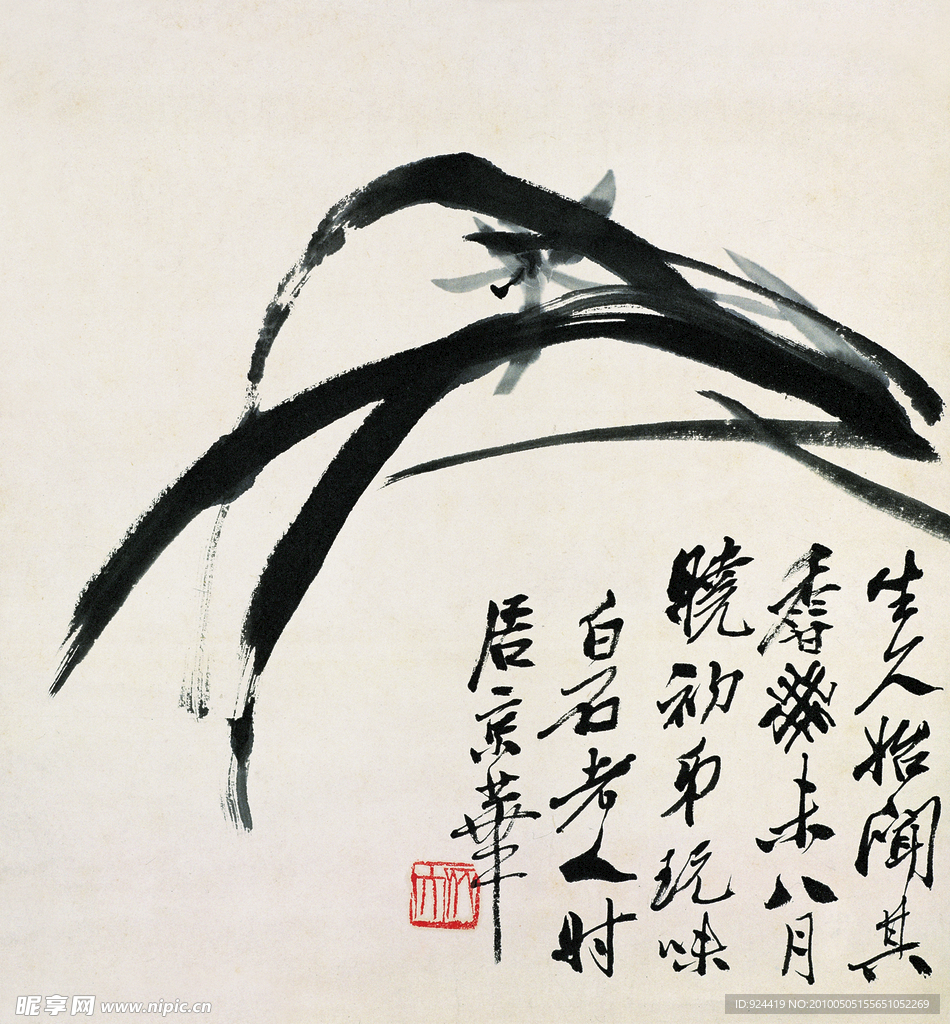 生人始闻其
香癸未八月
晓初弟玩味
白石老人时
居京華
木人
昵享网 www.nipic.cn
ID:924419 NO:20100505155651052269